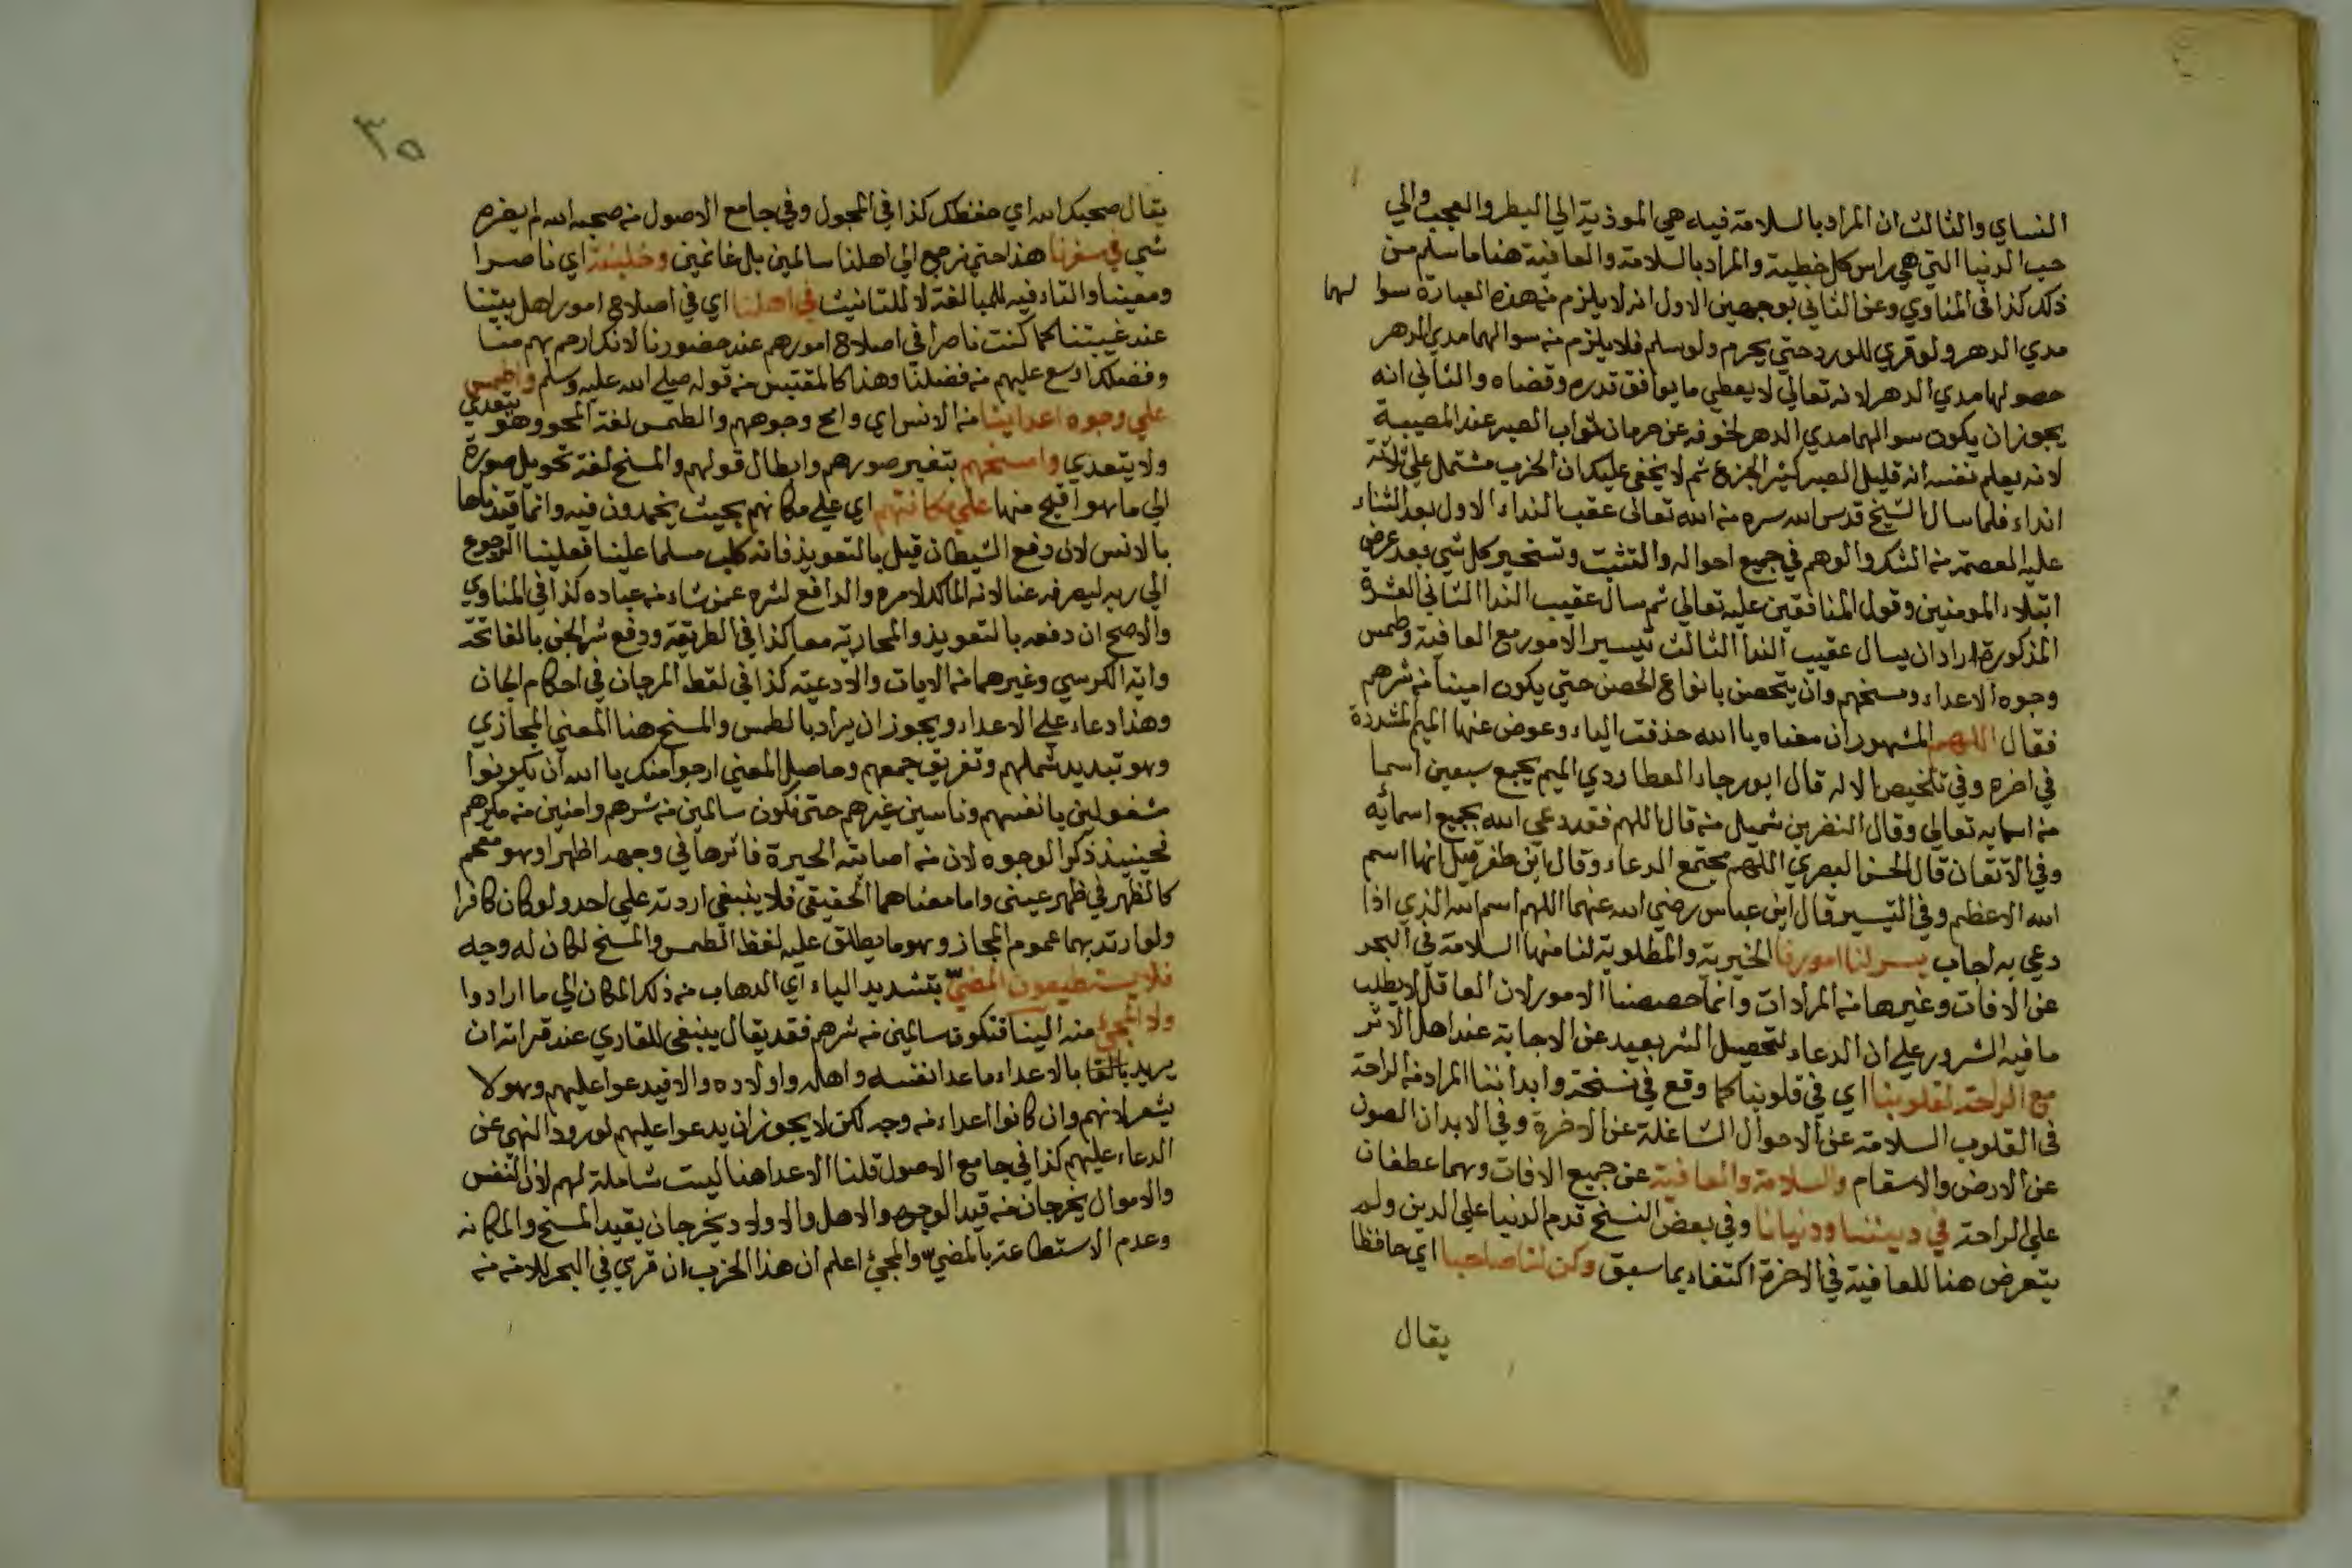 النساي والثالث ان المراد بالسلامة فيه هي الموذية الي البطر والعجب والي
حب الدنيا التي هي راس كل خطية والمراد بالسلامة والعافية هنا ما سلم من
ذلك كذا في المناوي وعن الثاني بوجهين الاول انه لا يلزم من هذه العبارة سوا لهما
مدي الدهر ولو قري للورد حتي يحرم ولو سلم فلا يلزم من سوالهما مدي الدهر
حصولها مدي الدهر لانه تعالي لا يعطي ما يوافق قدره وقضاه والثاني انه
يجوز ان يكون سوالهما مدي الدهر لخوفه عن حرمان ثواب الصبر عند المصيبة
لانه يعلم نفسه انه قليل الصبر كثير الجزع ثم لا يخفي عليك ان الحزب مشتمل علي ثلاثة
انداء فلما سال الشيخ قدس الله سره من الله تعالى عقب النداء الاول بعد الثناء
عليه العصمة من الشك والوهم في جميع احواله والتثبت وتسخير كل شي بعد عرض
ابتلاء المومنين وقول المنافقين عليه تعالي ثم سال عقيب الندا الثاني العشرة
المذكورة اراد ان يسال عقيب الندا الثالث تيسير الامور مع العافية وطمس
وجوه الاعداء ومسخهم وان يتحصن بانواع الحصن حتي يكون امينا من شرهم
فقال اللهم المشهور ان معناه يا الله حذفت الياء وعوض عنها الميم المشددة
في اخره وفي تلخيص الاله قال ابو رجاء العطاردي الميم يجمع سبعين اسما
من اسمايه تعالي وقال النضر بن شميل من قال اللهم فقد دعي الله بجميع اسمائه
وفي الاتقان قال الحسن البصري اللهم مجتمع الدعاء وقال ابن ظفر قيل انها اسم
الله الاعظم وفي التيسير قال ابن عباس رضي الله عنهما اللهم اسم الله الذي اذا
دعي به اجاب يسر لنا امورنا الخيرية والمطلوبة لنا منها السلامة في البحر
عن الافات وغيرها من المرادات وانما خصصنا الامور لان العاقل لا يطلب
ما فيه الشرور علي ان الدعاء لتحصيل الشر بعيد عن الاجابة عند اهل الاثر
مع الراحة لقلوبنا اي في قلوبنا كما وقع في نسخة وابداننا المراد من الراحة
في القلوب السلامة عن الاحوال الشاغلة عن الاخرة وفي الابدان الصون
عن الارض والاسقام والسلامة والعافية عن جميع الافات وهما عطفان
علي الراحة في ديننا ودنيانا وفي بعض النسخ قدم الدنيا علي الدين ولم
يتعرض هنا للعافية في الاخرة اكتفاء بما سبق وكن لنا صاحبا اي حافظا
يقال
٣٥
يقال صحبك الله اي حفظك كذا في المجمل وفي جامع الاصول من صحبه الله لم يضره
شي في سفرنا هذا حتي نرجع الي اهلنا سالمين بل غانمين وخليفة اي ناصرا
ومعينا والتاء فيه للمبالغة لا للتانيث في اهلنا اي في اصلاح امور اهل بيتنا
عند غيبتنا كما كنت ناصرا في اصلاح امورهم عند حضورنا لانك ارحم بهم منا
وفضلك اوسع عليهم من فضلنا وهذا كالمقتبس من قوله صلي الله عليه وسلم واطمس
علي وجوه اعداينا من الانس اي وامح وجوههم والطمس لغة المحو وهو يتعدي
ولا يتعدي وامسخهم بتغير صورهم وابطال قولهم والمسخ لغة تحويل صورة
الي ما هو اقبح منها علي مكانتهم اي علي مكانهم بحيث يخمدون فيه وانما قيدناها
بالانس لان دفع الشيطان قيل بالتعويذ فانه كلب مسلما علينا فعلينا الرجوع
الي ربه ليصرفه عنا لانه المالك لامره والدافع لشره عمن شاء من عباده كذا في المناوي
والاصح ان دفعه بالتعويذ والمحاربة معا كذا في الطريقة ودفع شر الجن بالفاتحة
واية الكرسي وغيرهما من الايات والادعية كذا في لقط المرجان في احكام الجان
وهذا دعاء علي الاعداء ويجوز ان يراد بالطمس والمسخ هنا المعني المجازي
وهو تبديد شملهم وتفريق جمعهم وحاصل المعني ارجوا منك يا الله ان يكونوا
مشغولين بانفسهم وناسين غيرهم حتي نكون سالمين من شرهم وامنين من مكرهم
فحينيذ ذكر الوجوه لان من اصابته الحيرة فاثرها في وجهه اظهر او هو مقحم
كالظهر في ظهر عيني واما معناهما الحقيقي فلا ينبغي اردته علي احد ولو كان كافرا
ولو اردته بهما عموم المجاز وهو ما يطلق عليه لفظ الطمس والمسخ لكان له وجه
فلا يستطيعون المضي بتشديد الياء اي الدهاب من ذلك المكان الي ما ارادوا
ولا المجئ منه الينا فنكون سالمين من شرهم فقد يقال ينبغي للقاري عند قراته ان
يريد بالاعداء ما عدا نفسه واهله واولاده والا فيدعوا عليهم وهو لا
يشعر لانهم وان كانوا اعداء من وجه لكن لا يجوز ان يدعوا عليهم لورود النهي عن
الدعاء عليهم كذا في جامع الاصول قلنا الاعدا هنا ليست شاملة لهم لان النفس
والاموال يخرجان من قيد الوجوه والاهل والاولاد يخرجان بقيد المسخ والمكانه
وعدم الاستطاعة بالمضي والمجئ اعلم ان هذا الحزب ان قري في البحر للامة منه